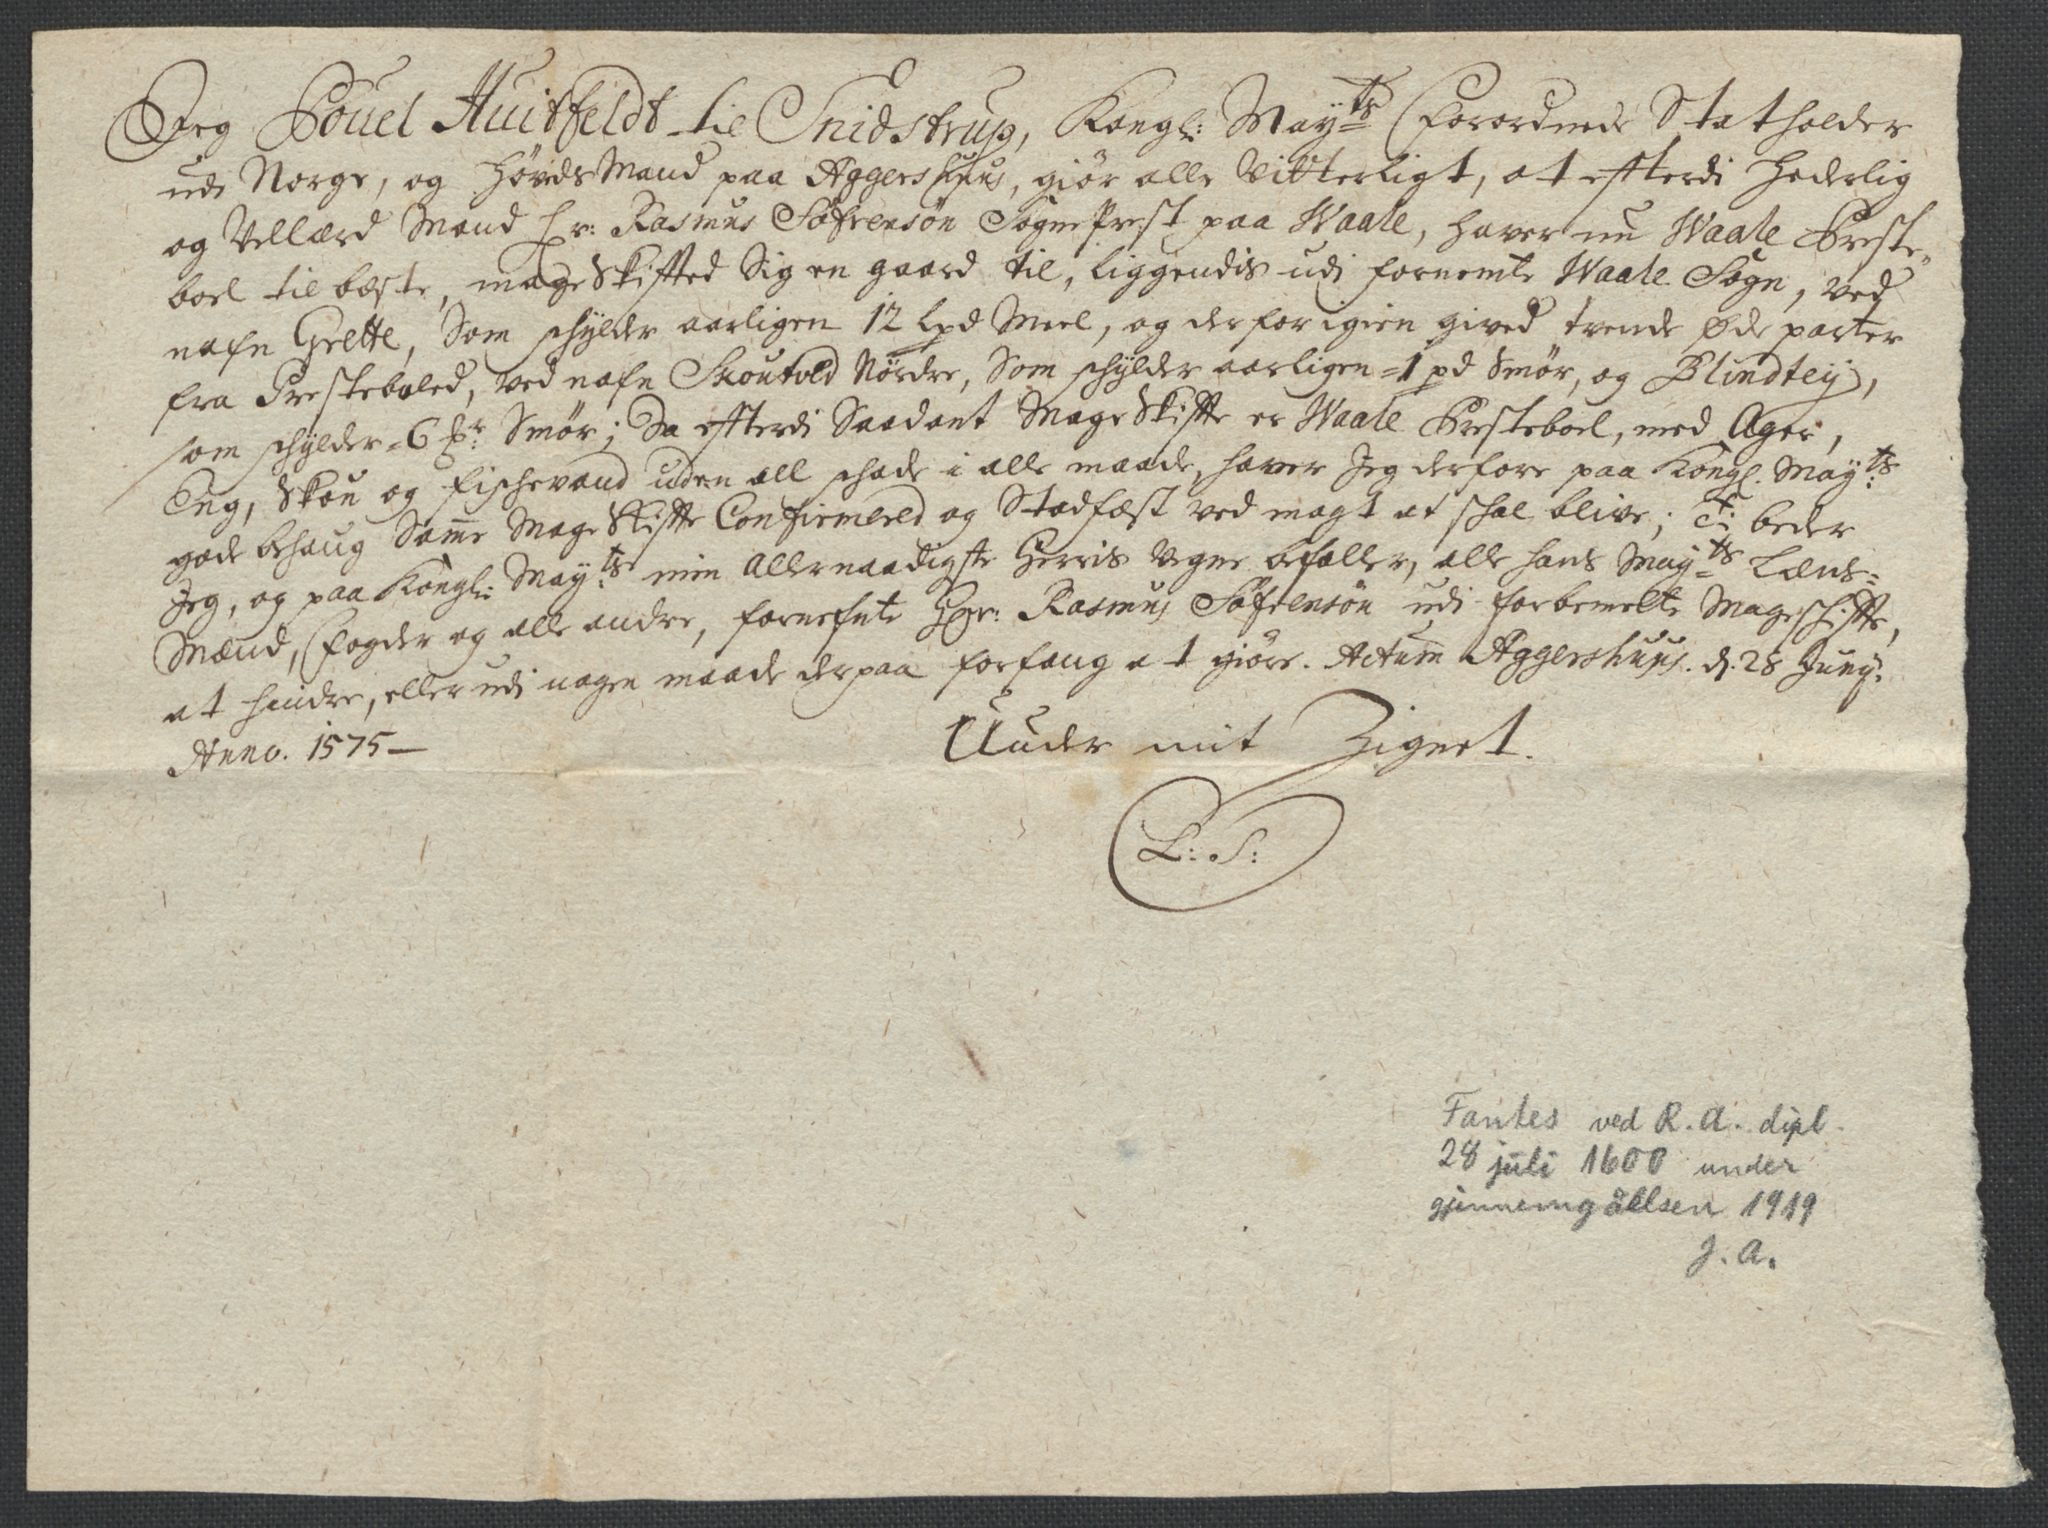 Jeg Pouel Huitfeldt til Snidstrup, Kongl: Mayts Forordnede Statholder
udi Norge, og HøvdsMand paa Aggershuus, giör alle Vitterligt, at efterdi Hederlig
og Vellærd Mand Hr: Rasmus Söfrensön SognePrest paa Waale, haver nu Waale Preste-
boel til beste, mageskifted Sig en gaard til, liggendis udi fornemte Waale Sogn, ved
nafn Grette, Som schylder aarligen 12 Lpd Meel, og derfor igien gived trende Øde parter
fra Presteboled, ved nafn Skoutvld Nördre, Som schylder aarligen =1 pd Smör, og Blindtey,
som schylder =6 Smör; Da efterdi Saadant Mageskiffte er Waale Presteboel, med Ager,
Eng, Skou og Fischevand uden all schade i alle maade, haver Jeg derfore paa Kongl. Mayts
gode behaug Samme Mageskiffte Confirmered og Stadfæst ved magt at schal blive; Ti beder
Jeg, og paa Kongl: Mayts min Allernaadigste Herris Vegne befaller, alle hans Mayts Læns=
Mænd, Fogder og alle andre, fornefnte Hr: Rasmus Söfrensön udi forbemelte Mageschiffte,
at hindre, eller udi nogen maade derpaa forfang at giöre. Actum Aggershuus. d. 28 Junÿ.
Anno. 1575—
Under mit Zignet.
L: S:
Fantes ved R. A. dipl.
28 juli 1600 under
gjennemgåelsen 1919
J. A.